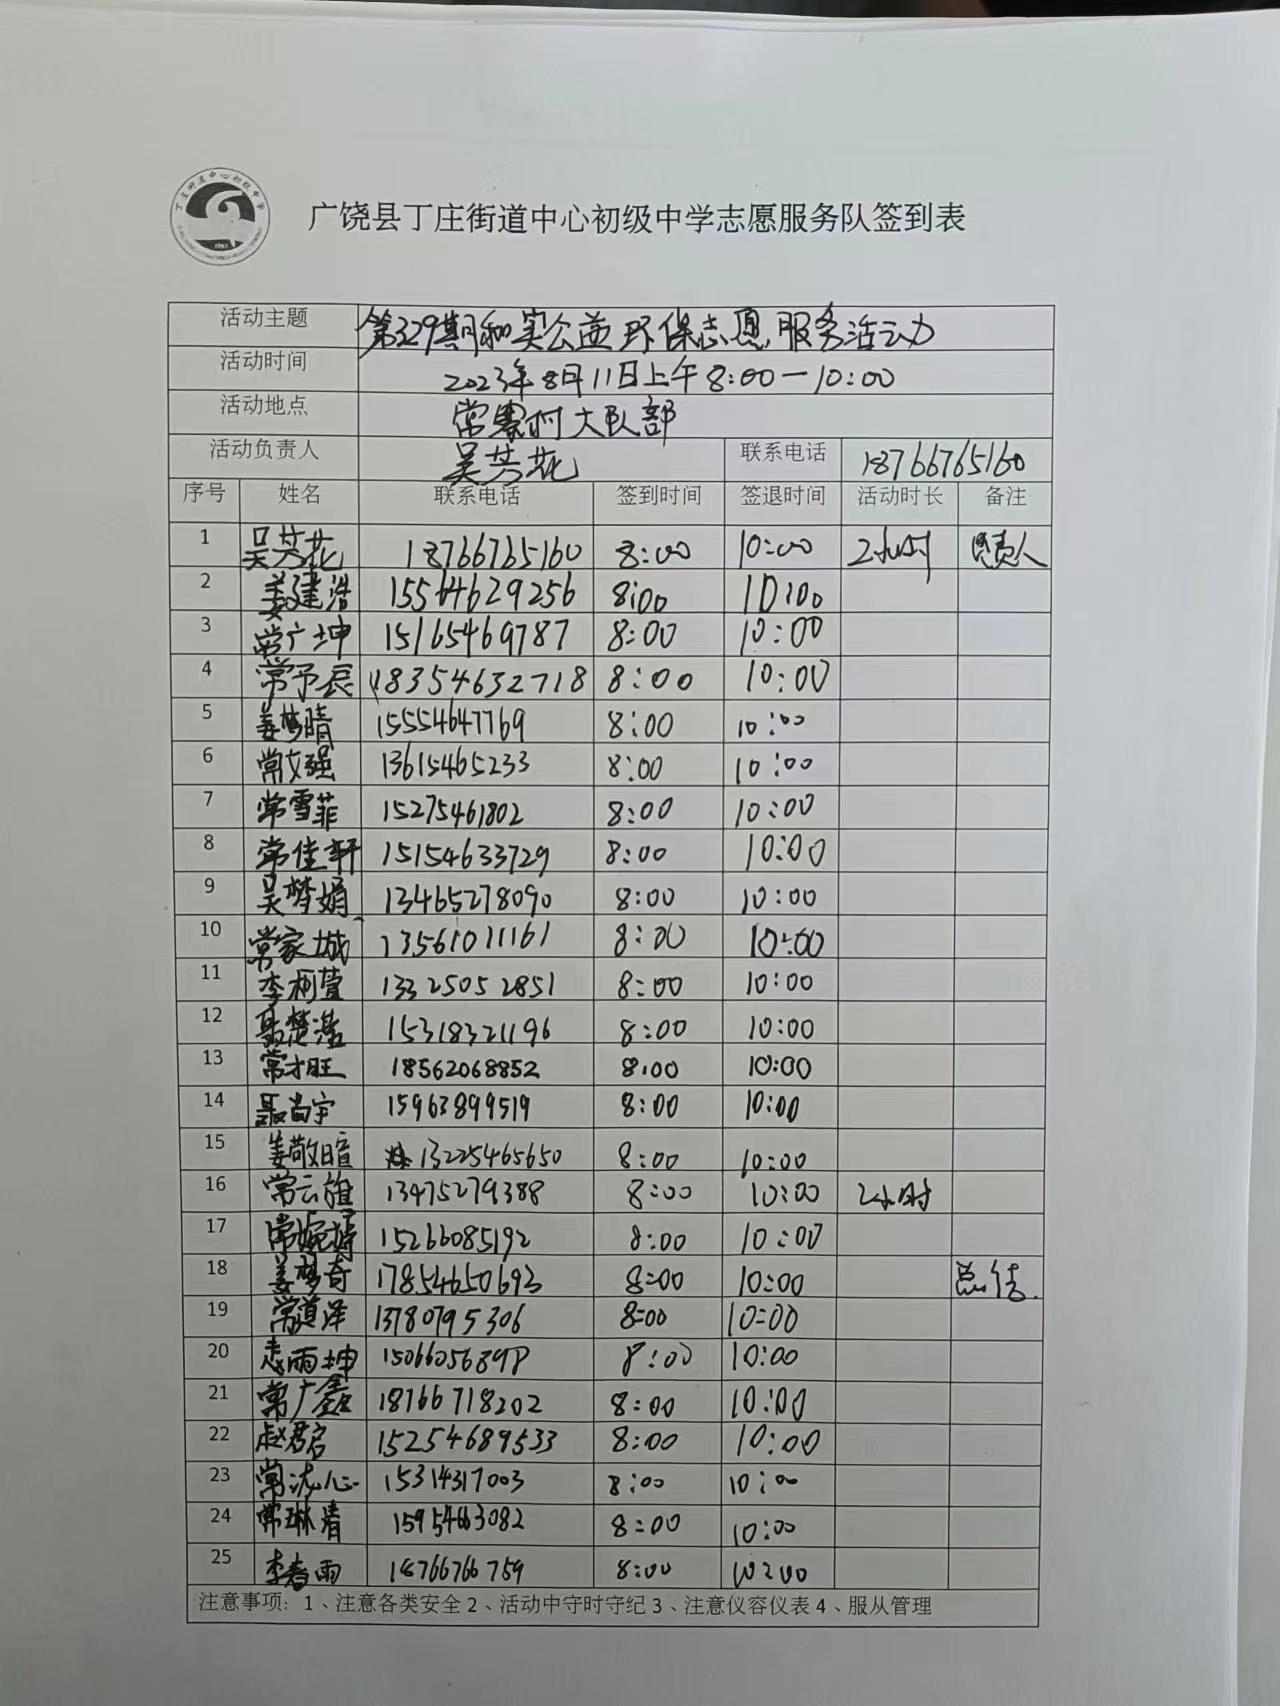 丁庄街道中心初级中学
广饶县丁庄街道中心初级中学志愿服务队签到表
活动主题 第329期和实公益环保志愿服务活动
活动时间 2023年8月11日上午8:00—10:00
活动地点 常寨村大队部
活动负责人 吴芳花 联系电话 18766765160
序号 姓名 联系电话 签到时间 签退时间 活动时长 备注
1 吴芳花 18766765160 8:00 10:00 2小时 负责人
2 姜建浩 15564629256 8:00 10:00
3 常广坤 15165469787 8:00 10:00
4 常予辰 18354632718 8:00 10:00
5 姜梦晴 15554647769 8:00 10:00
6 常文强 13615465233 8:00 10:00
7 常雪菲 15275461802 8:00 10:00
8 常佳轩 15154633729 8:00 10:00
9 吴梦娟 13465278090 8:00 10:00
10 常家城 13561011161 8:00 10:00
11 李柯萱 13325052851 8:00 10:00
12 聂楚滢 15318321196 8:00 10:00
13 常才旺 18562068852 8:00 10:00
14 聂尚宇 15963899519 8:00 10:00
15 姜敬暄 13225465650 8:00 10:00
16 常云雅 13475279388 8:00 10:00 2小时
17 常婉婷 15266085192 8:00 10:00
18 姜梦奇 17854650693 8:00 10:00 总结
19 常道泽 13780795306 8:00 10:00
20 雨坤 15066056898 8:00 10:00
21 常广鑫 18766718202 8:00 10:00
22 赵君启 15254689533 8:00 10:00
23 常心 15314317003 8:00 10:00
24 常琳清 15954663082 8:00 10:00
25 李春雨 18766766759 8:00 10:00
注意事项：1、注意各类安全2、活动中守时守纪3、注意仪容仪表4、服从管理